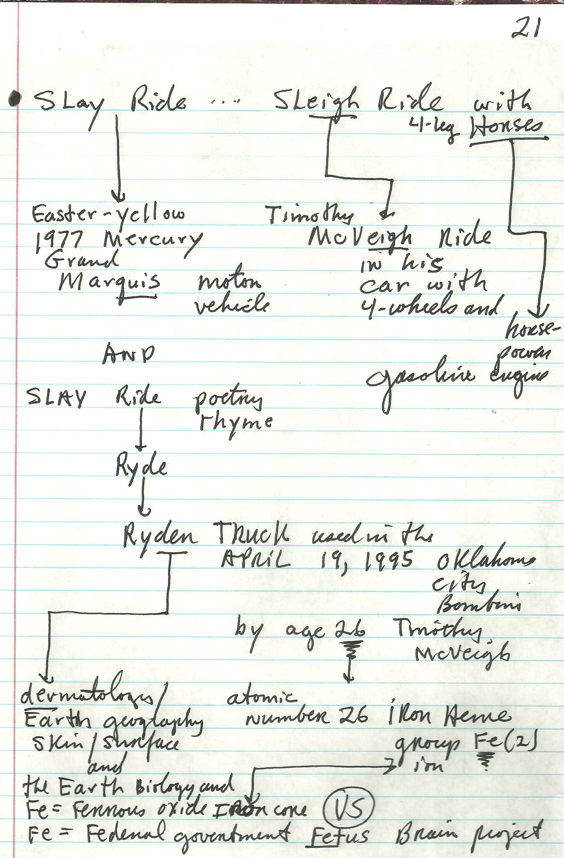 21
SLay Ride .... SLeigh Ride with
4-leg Horses
Easter-yellow
1977 Mercury
Grand
Marquis motor
vehicle
Timothy
McVeigh Ride
in his
car with
4-wheels and
horse-
power
gasoline engine
AND
SLAY Ride poetry
rhyme
Ryde
Ryder TRUCK used in the
APRIL 19, 1995 Oklahoma
City
Bombing
by age 26 Timothy
McVeigh
dermatology/
Earth geography
Skin/surface
and
the Earth Biology and
atomic
number 26 iRon Heme
group Fe(2)
ion
Fe = Ferrous oxide IRon core VS
Fe = Federal government Fetus Brain project